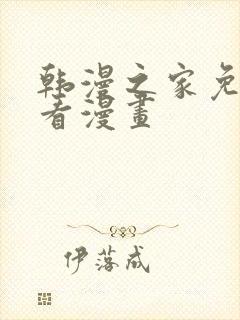 韩漫之家免
看漫畫
伊落成